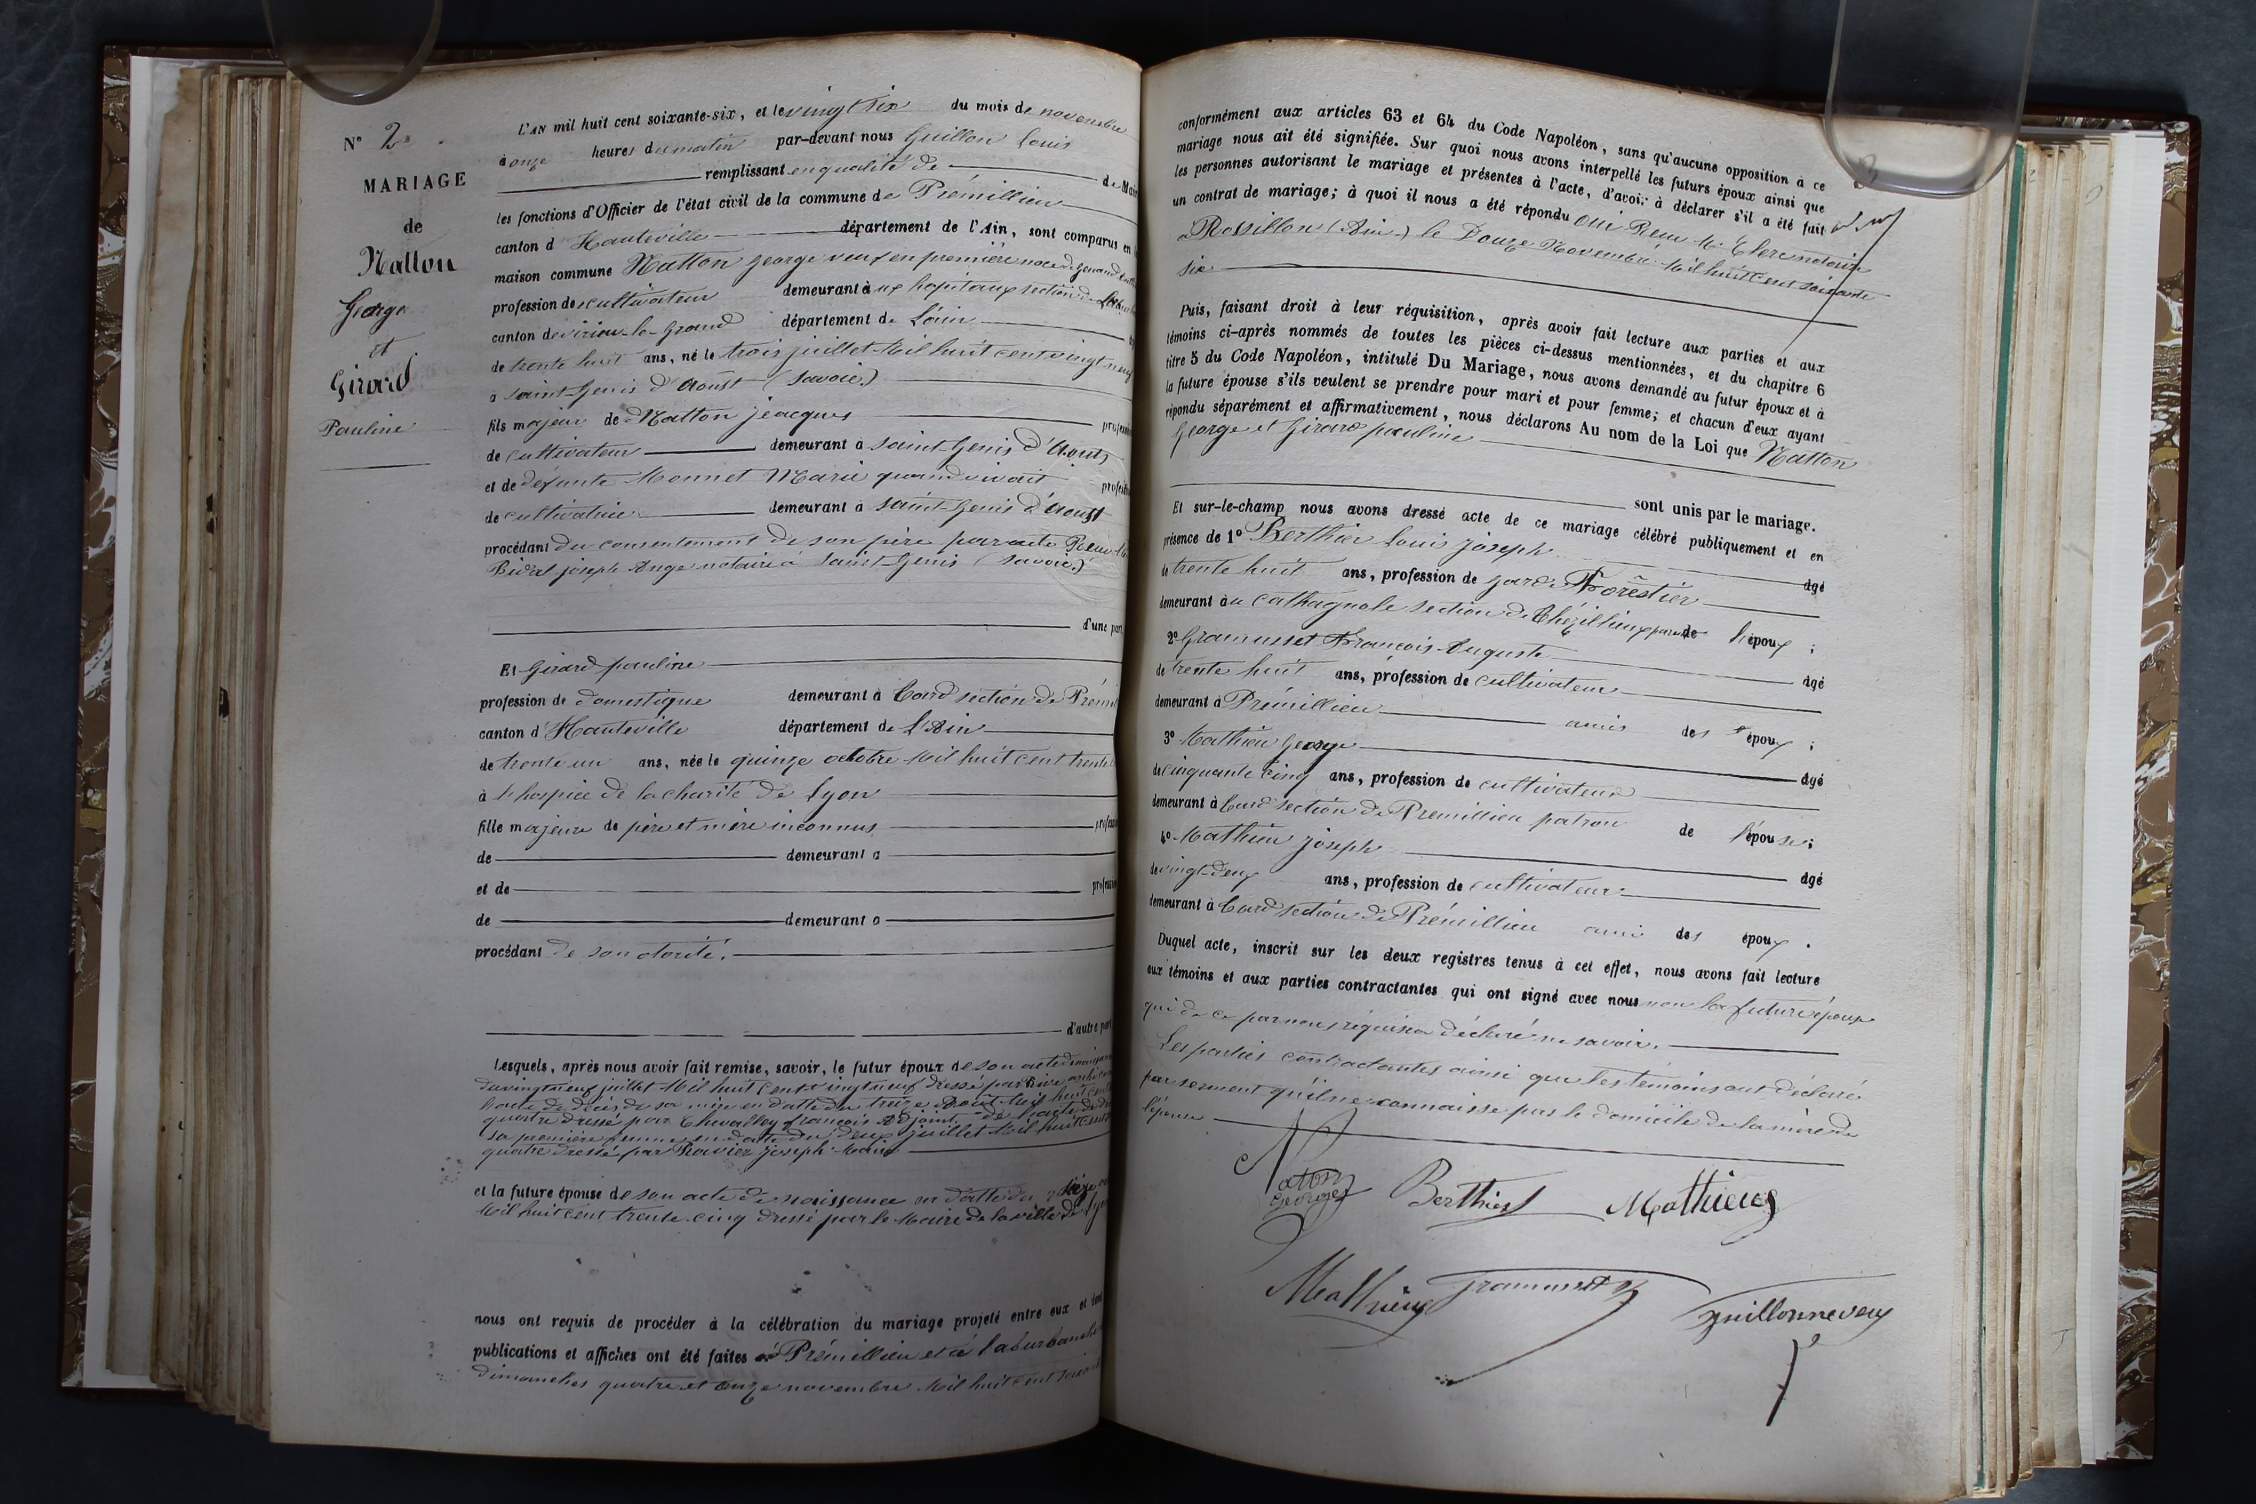 N° 2
MARIAGE
de
Natton
George
et
Girard
Pauline
L'AN mil huit cent soixante-six, et le vingt six du mois de novembre
à onze heures du matin par-devant nous Guillon Louis
remplissant en qualité de de Maire
les fonctions d'Officier de l'état civil de la commune de Prémillieu
canton d Hauteville département de l'Ain, sont comparus en la
maison commune Natton George veuf en première noce de
profession de cultivateur demeurant à ux hopitaux section de
canton de virieu-le-Grand département de L'ain
de trente huit ans, né le trois juillet Mil huit cent vingt neuf
à saint Genis d'Aoust (Savoie)
fils majeur de Natton jeacques profession
de cultivateur demeurant à Saint Genis d'Aoust
et de défunte Monnet Marie quand vivait profession
de cultivatrice demeurant à saint Genis d'Aoust
procédant du consentement de son père par acte Recu Me
Bidal joseph Ange notaire à Saint Genis (Savoie)
d'une part,
Et Girard pauline
profession de domestique demeurant à Card section de Prémil
canton d'Hauteville département de L'Ain
de trente un ans, née le quinze octobre Mil huit cent trente
à L'hospice de la charité de Lyon
fille majeure de père et mère inconnus profession
de demeurant à
et de profession
de demeurant à
procédant de son otorité.
d'autre part
Lesquels, après nous avoir fait remise, savoir, le futur époux de son acte de naissance
du vingt neuf juillet Mil huit cent vingt neuf dressé par
L'acte de décès de sa mère en datte du treize Aout Mil huit cent
quatre dressé par Chevalley françois Adjoint. de L'acte de
sa première femme en date du deux juillet Mil huit cent
quatre dressé par Ravier Joseph Maire
et la future épouse de son acte de naissance en datte du seize
Mil huit cent trente cinq dressé par le Maire de la ville de Lyon
nous ont requis de procéder à la célébration du mariage projeté entre eux et dont
publications et affiches ont été faites à Prémillieu et à Laburbanche
dimanches quatre et onze novembre Mil huit cent soixante
conformément aux articles 63 et 64 du Code Napoléon, sans qu'aucune opposition à ce
mariage nous ait été signifiée. Sur quoi nous avons interpellé les futurs époux ainsi que
les personnes autorisant le mariage et présentes à l'acte, d'avoir à déclarer s'il a été fait
un contrat de mariage; à quoi il nous a été répondu oui Recu Me Clerc notaire
à Rossillon (Ain) le Douze Novembre Mil huit cent soixante
six
Puis, faisant droit à leur réquisition, après avoir fait lecture aux parties et aux
témoins ci-après nommés de toutes les pièces ci-dessus mentionnées, et du chapitre 6
titre 5 du Code Napoléon, intitulé Du Mariage, nous avons demandé au futur époux et à
la future épouse s'ils veulent se prendre pour mari et pour femme; et chacun d'eux ayant
répondu séparément et affirmativement, nous déclarons Au nom de la Loi que Natton
George et Girard pauline
sont unis par le mariage.
Et sur-le-champ nous avons dressé acte de ce mariage célébré publiquement et en
présence de 1° Berthier Louis Joseph âgé
de trente huit ans, profession de garde Forestier
demeurant à u Cathagnole section de Thézillieu parent de l'époux ;
2° Gramusset François Auguste âgé
de trente huit ans, profession de cultivateur
demeurant à Prémillieu amis des époux ;
3° Mathieu George âgé
de cinquante cinq ans, profession de cultivateur
demeurant à Card section de Prémillieu patron de l'épouse ;
4° Mathieu Joseph âgé
de vingt-deux ans, profession de cultivateur
demeurant à Card section de Prémillieu ami des époux .
Duquel acte, inscrit sur les deux registres tenus à cet effet, nous avons fait lecture
aux témoins et aux parties contractantes qui ont signé avec nous non la future épouse
qui de ce par nous réquise a déclaré ne savoir.
Les parties contractantes ainsi que les témoins ont déclaré
par serment qu'il ne connaisse pas le domicile de la mère de
l'épouse
Natton
George
Berthier Mathieu
Mathieu Gramusset guillonneveu